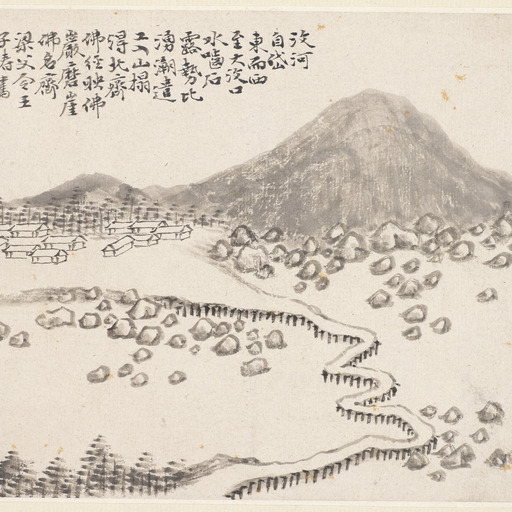 汶河
自岱
東而西
至大汶口
水嚙石
露勢比
湧潮遣
工入山搨
得北齊
佛經映佛
巖磨崖
佛名齊
梁父令王
子椿書